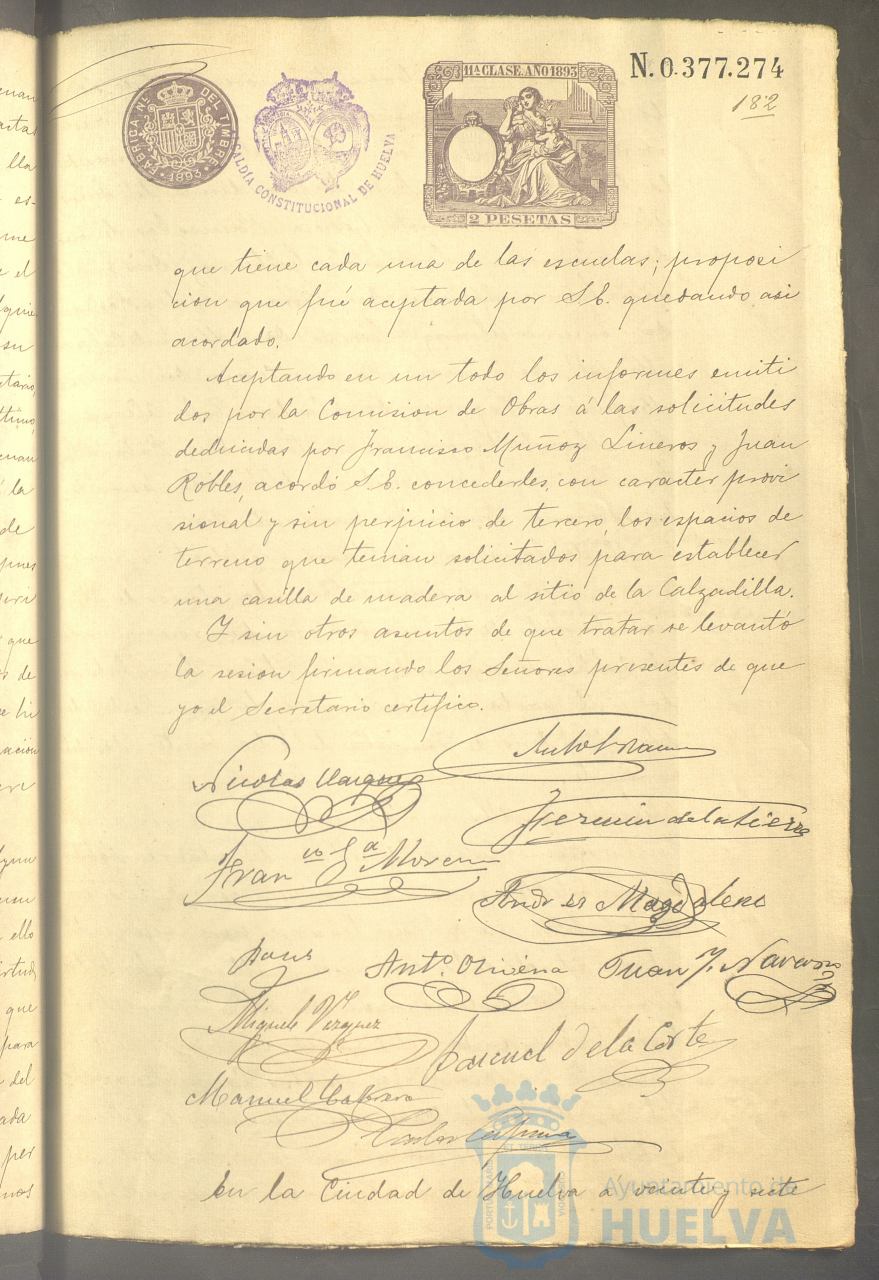 FABRICA NL. DEL TIMBRE
1893
ALCALDÍA CONSTITUCIONAL DE HUELVA
11ª CLASE. AÑO 1893
2 PESETAS
N.0.377.274
182
que tiene cada una de las escuelas; proposi
cion que fué aceptada por S.E. quedando asi
acordado.
Aceptando en un todo los informes emiti
dos por la Comision de Obras á las solicitudes
deducidas por Francisco Muñoz Lineros y Juan
Robles, acordó S.E. concederles, con caracter provi
sional y sin perjuicio de tercero, los espacios de
terreno que tenian solicitados para establecer
una casilla de madera al sitio de la Calzadilla.
Y sin otros asuntos de que tratar se levantó
la sesion firmando los Señores presentes de que
yo el Secretario certifico.
Nicolas Vazquez
Fermin de la Sierra
Franco Ga Moreno
Andres Magdaleno
Anto. Oliveira Juan J. Navarro
Miguel Vazquez
Pascual de la Corte
Manuel Cabrera
En la Ciudad de Huelva á veinte y siete
Ayuntamiento de
HUELVA